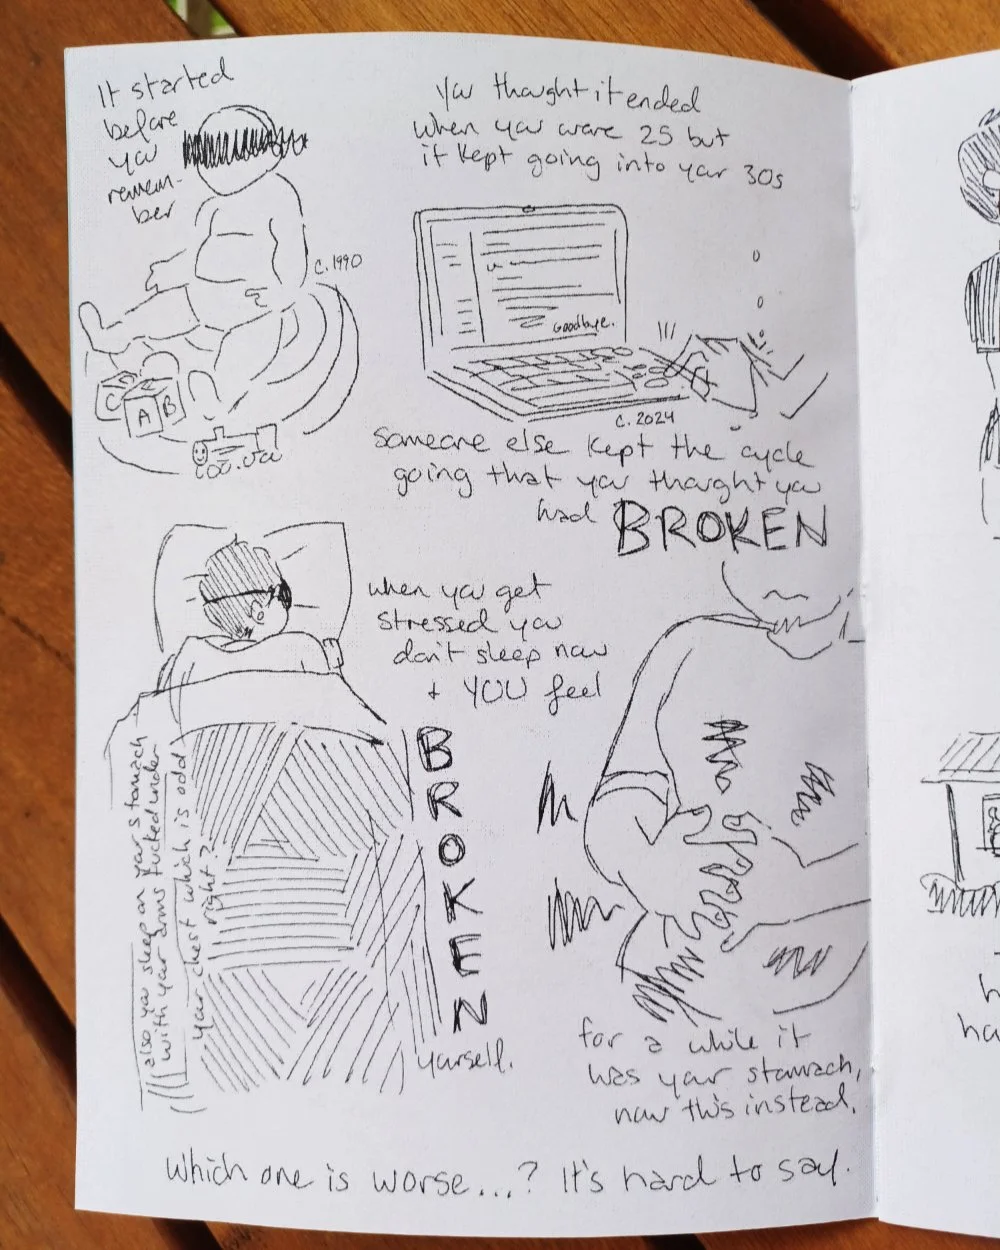 It started
before
you
remem-
ber
c. 1990
C
A B
You thought it ended
when you were 25 but
it kept going into your 30s
Goodbye.
c. 2024
someone else kept the cycle
going that you thought you
had BROKEN
when you get
stressed you
don't sleep now
+ YOU feel
BROKEN
yourself.
also you sleep on your stomach
with your arms tucked under
your chest which is odd,
right?
for a while it
was your stomach,
now this instead.
Which one is worse...? It's hard to say.
h
ha